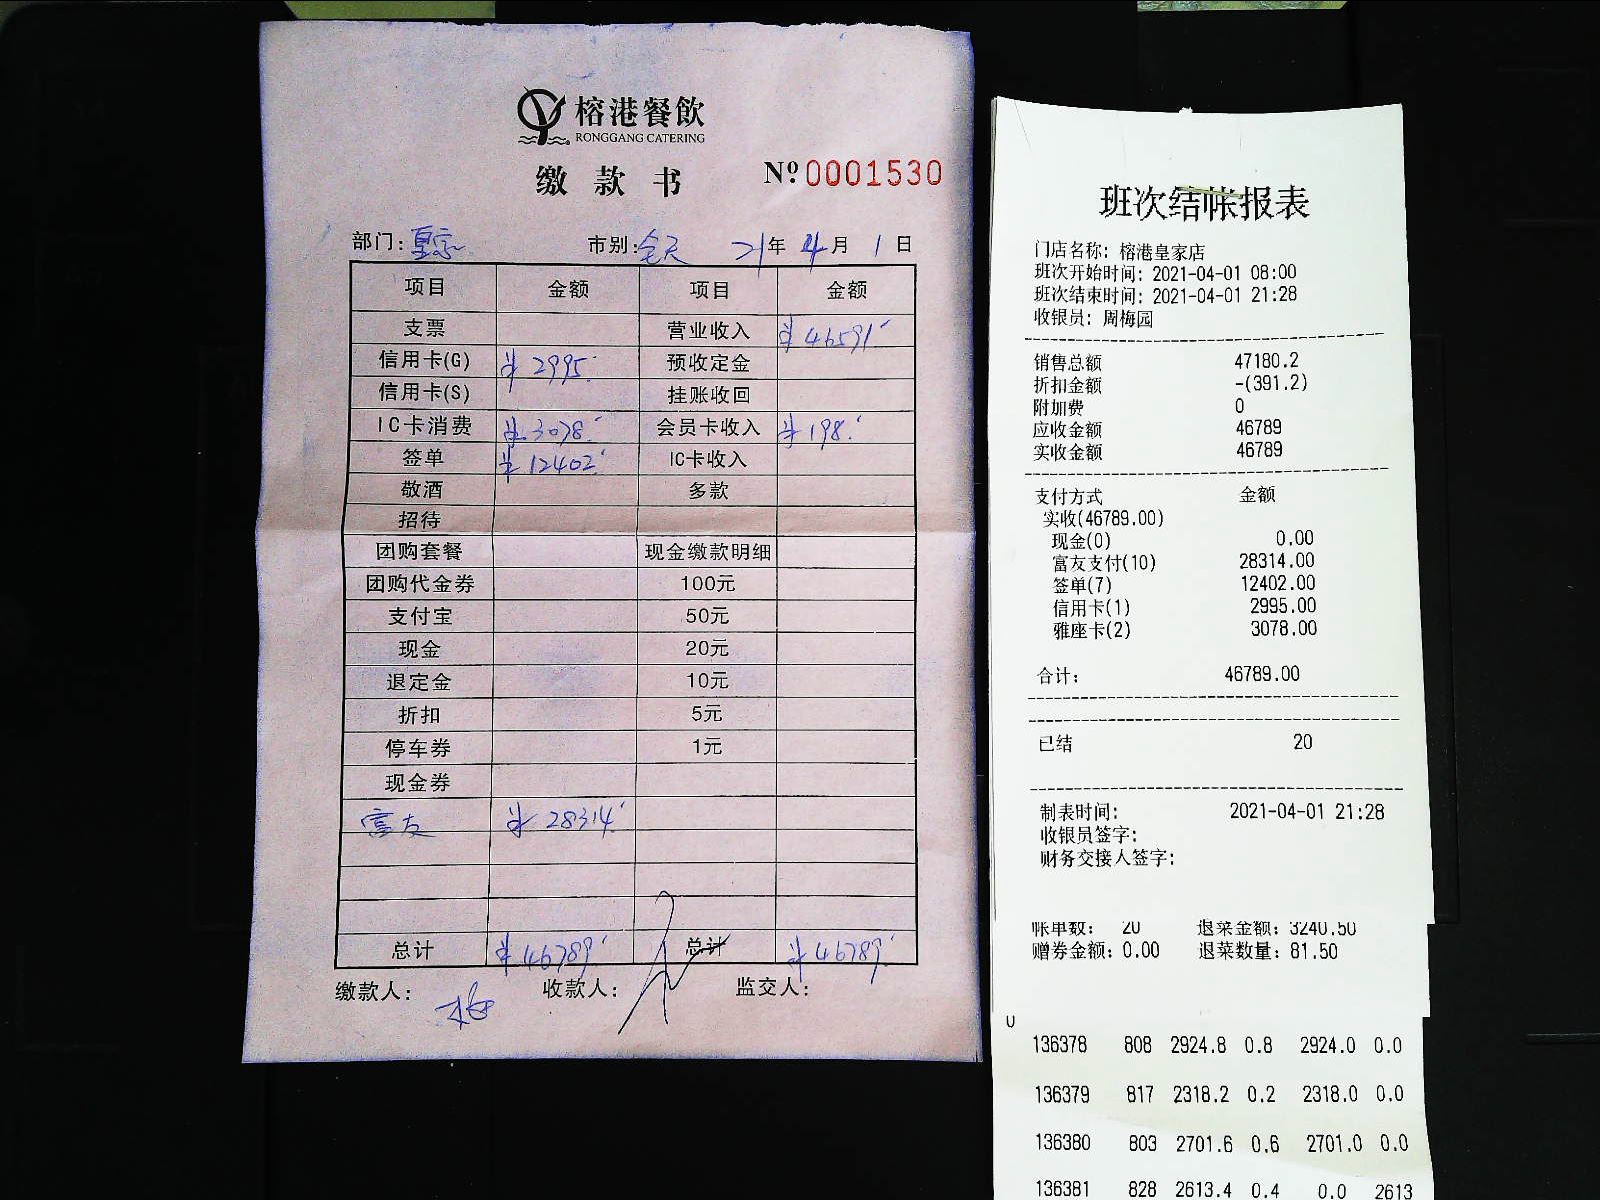 榕港餐飲
RONGGANG CATERING
缴款书
Nº0001530
部门:皇家 市别:全天 21年4月1日
项目 金额 项目 金额
支票 营业收入 ¥46591
信用卡(G) ¥2995 预收定金
信用卡(S) 挂账收回
IC卡消费 ¥3078 会员卡收入 ¥198
签单 ¥12402 IC卡收入
敬酒 多款
招待
团购套餐 现金缴款明细
团购代金券 100元
支付宝 50元
现金 20元
退定金 10元
折扣 5元
停车券 1元
现金券
富友 ¥28314
总计 ¥46789 总计 ¥46789
缴款人: 梅 收款人: 监交人:
班次结帐报表
门店名称: 榕港皇家店
班次开始时间: 2021-04-01 08:00
班次结束时间: 2021-04-01 21:28
收银员: 周梅园
销售总额 47180.2
折扣金额 -(391.2)
附加费 0
应收金额 46789
实收金额 46789
支付方式 金额
实收(46789.00)
现金(0) 0.00
富友支付(10) 28314.00
签单(7) 12402.00
信用卡(1) 2995.00
雅座卡(2) 3078.00
合计: 46789.00
已结 20
制表时间: 2021-04-01 21:28
收银员签字:
财务交接人签字:
帐单数: 20 退菜金额: 3240.50
赠券金额: 0.00 退菜数量: 81.50
136378 808 2924.8 0.8 2924.0 0.0
136379 817 2318.2 0.2 2318.0 0.0
136380 803 2701.6 0.6 2701.0 0.0
136381 828 2613.4 0.4 0.0 2613